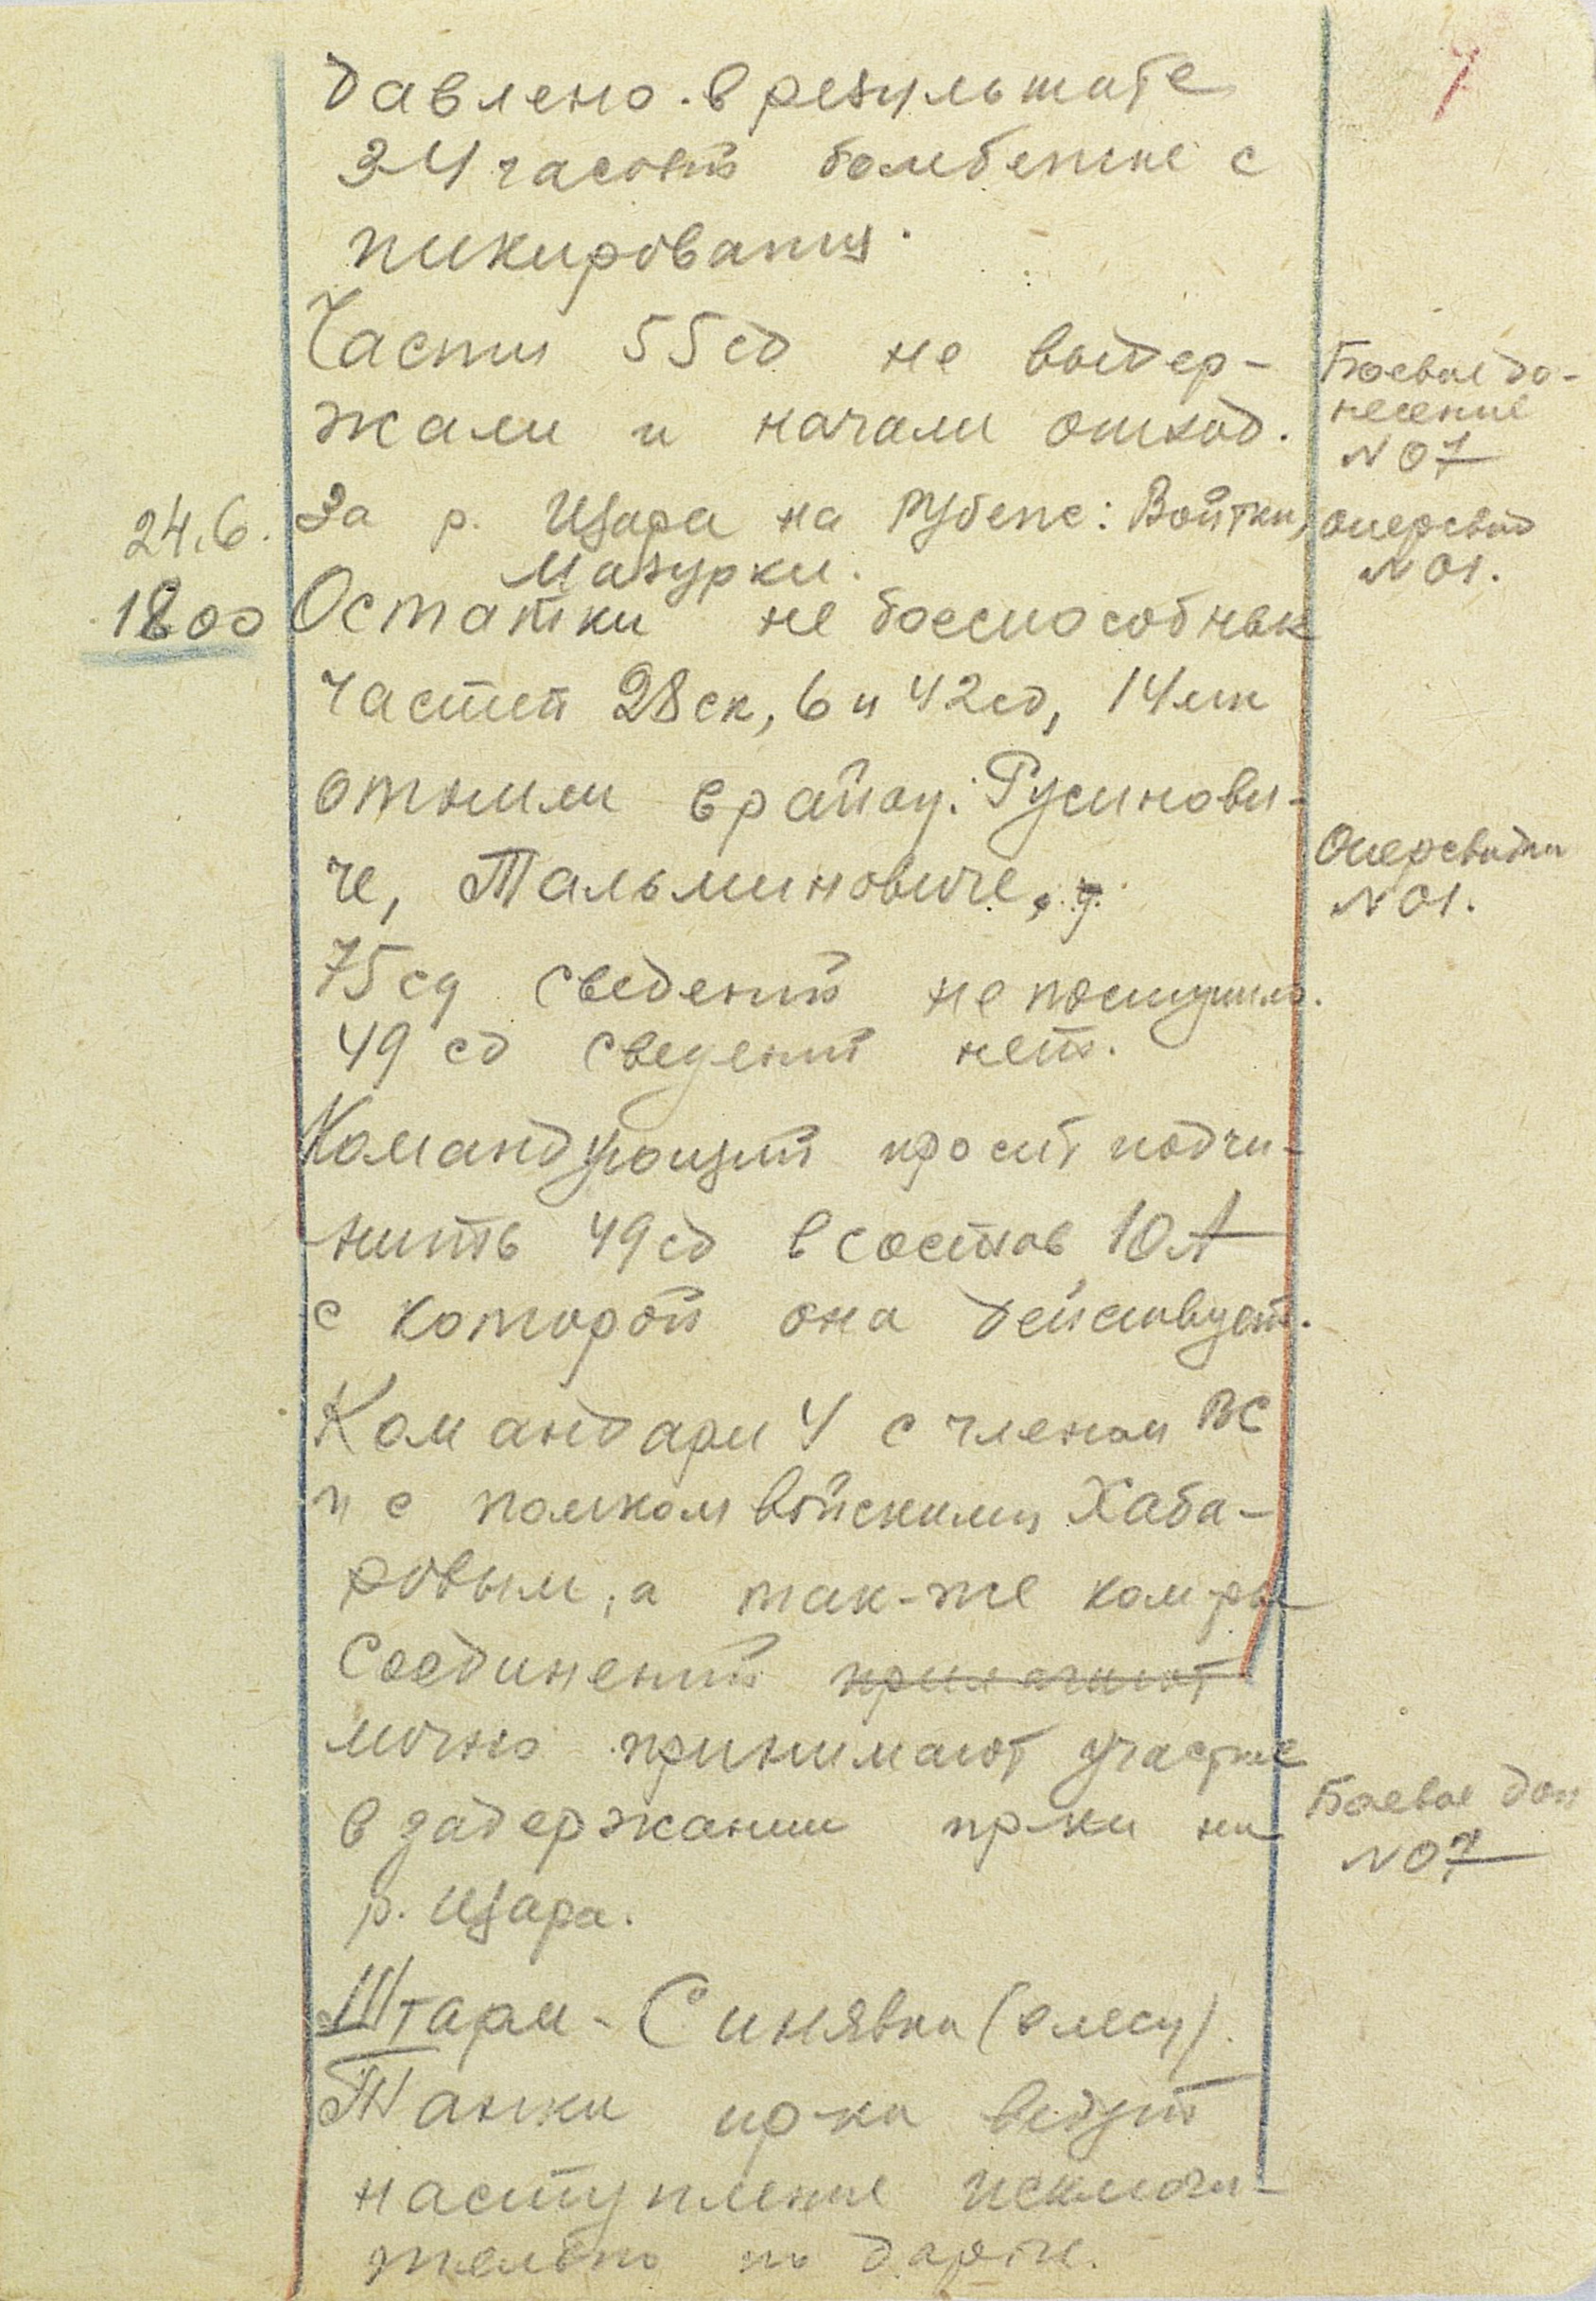 давлено. в результате
3-4 часовой бомбежке с
пикирования.
Части 55 сд не выдер-
жали и начали отход.
Боевое до-
несение
№ 07
24.6.
18 00
За р. Щара на рубеже: Войтки,
Мазурки.
оперсвод
№ 01.
Остатки не боеспособных
частей 28 ск, 6 и 42 сд, 14 мк
отошли в район: Русинови-
че, Тальминовиче,
Оперсводка
№ 01.
75 сд сведений не поступило.
49 сд сведений нет.
Командующий просит подчи-
нить 49 сд в состав 10 А
с которой она действует.
Командарм 4 с членом ВС
и с помком войсками Хаба-
ровым, а так-же ком-ры
соединений
лично принимают участие
в задержании пр-ка на
р. Щара.
Боевое дон
№ 07
Штарм - Синявка (в лесу).
Танки пр-ка ведут
наступление исключи-
тельно по дороге.